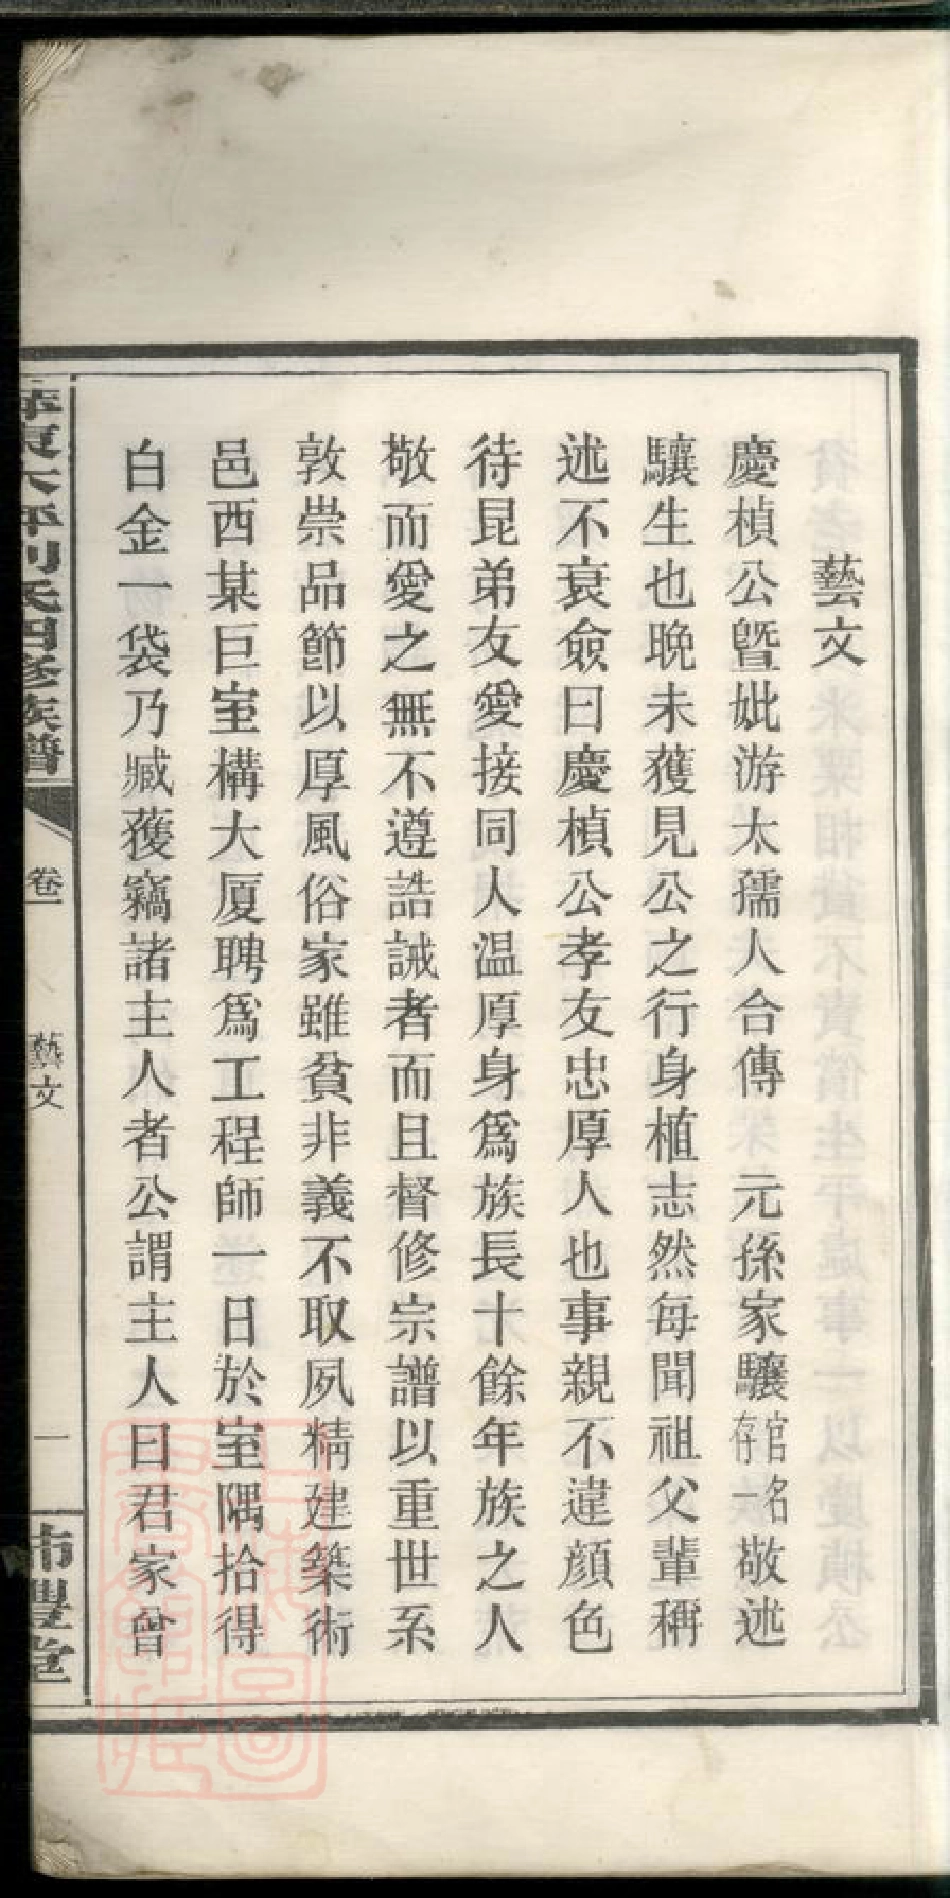 藝文
慶楨公曁妣游太孺人合傳 元孫家驤官名存一敬述
驤生也晚未獲見公之行身植志然每聞祖父輩稱
述不衰僉曰慶楨公孝友忠厚人也事親不違顔色
待昆弟友愛接同人温厚身爲族長十餘年族之人
敬而愛之無不遵誥誡者而且督修宗譜以重世系
敦崇品節以厚風俗家雖貧非義不取夙精建築術
邑西某巨室構大厦聘爲工程師一日於室隅拾得
白金一袋乃臧獲竊諸主人者公謂主人曰君家曾
東大坪刘氏四修族譜
卷
藝文
一
沛豐堂